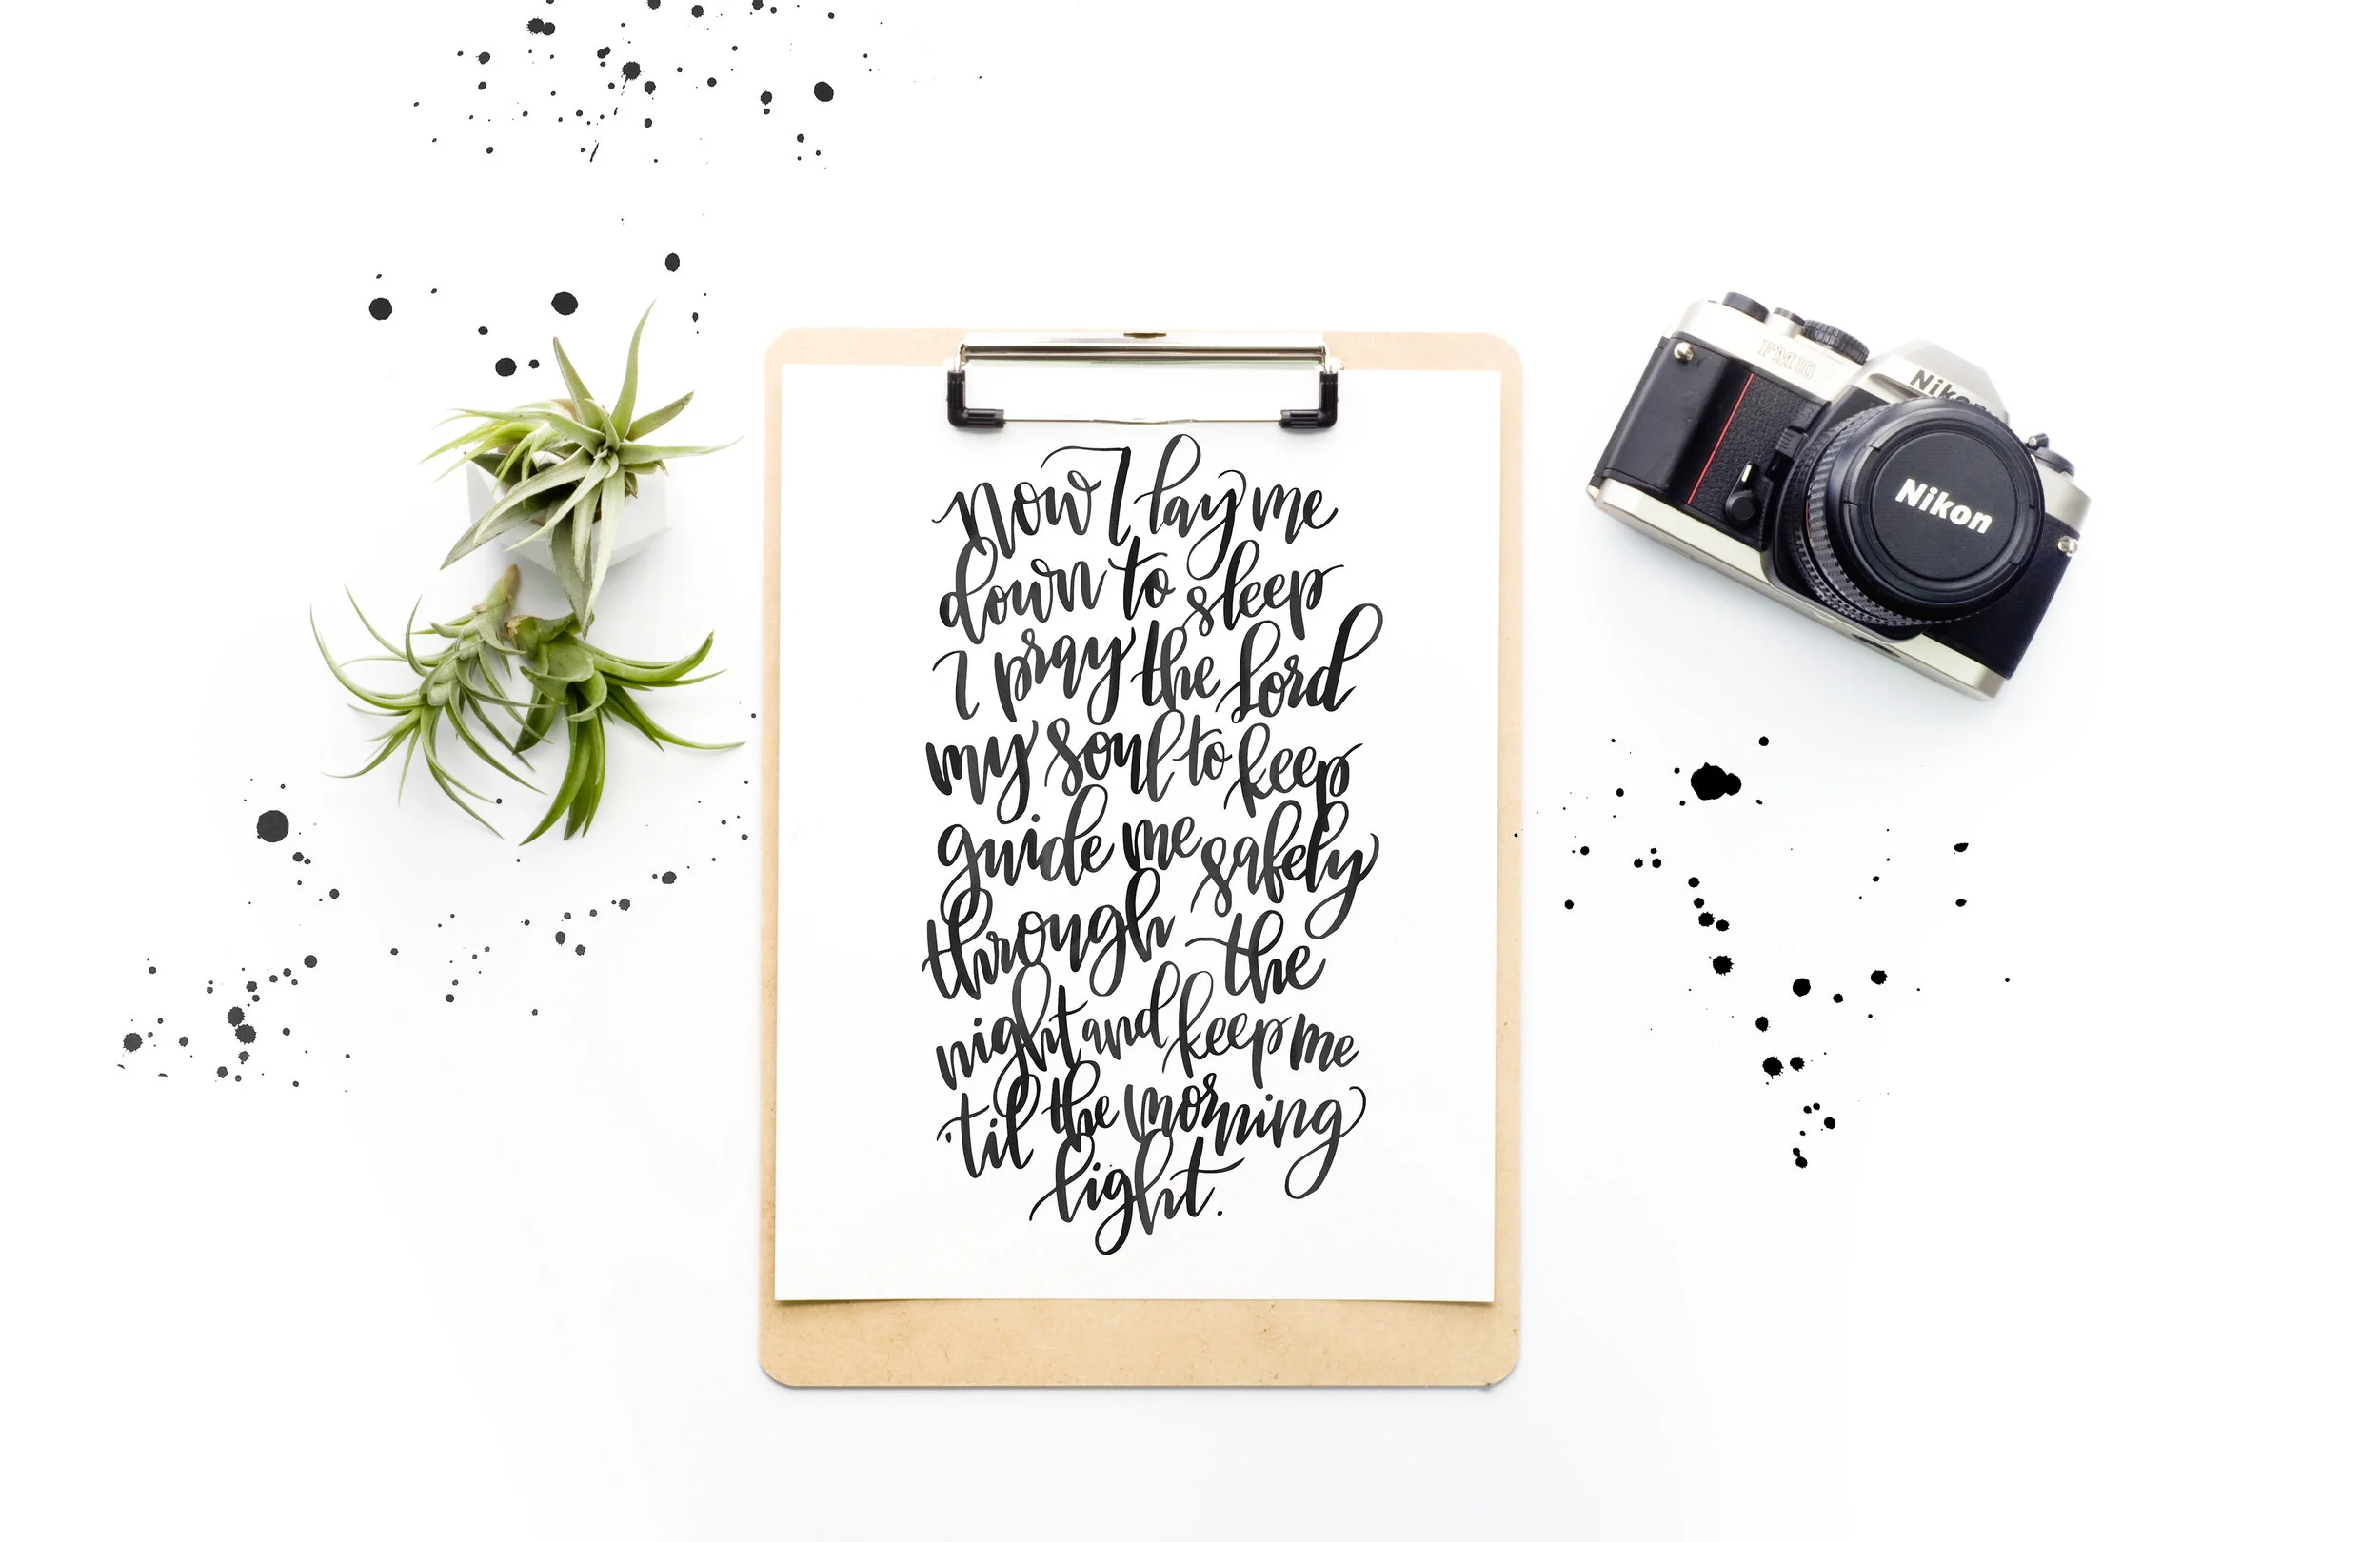 Now I lay me
down to sleep
I pray the Lord
my soul to keep
guide me safely
through the
night and keep me
'til the morning
light.
FM10
Nikon
Nikon